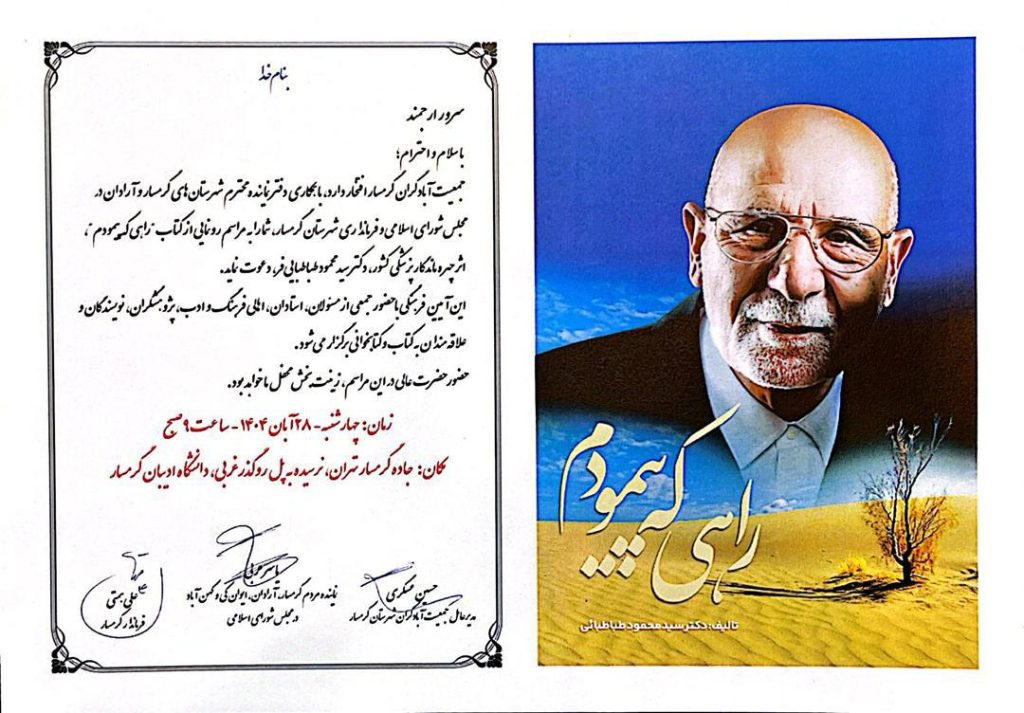 بنام خدا
سرور ارجمند
با سلام و احترام؛
جمعیت آبادگران گرمسار افتخار دارد، با همکاری دفتر نماینده محترم شهرستان های گرمسار و آرادان در
مجلس شورای اسلامی و فرمانداری شهرستان گرمسار، شما را به مراسم رونمایی از کتاب "راهی که پیمودم"،
اثر چهره ماندگار پزشکی کشور، دکتر سید محمود طباطبایی فر، دعوت نماید.
این آیین فرهنگی با حضور جمعی از مسئولان، استادان، اهالی فرهنگ و ادب، پژوهشگران، نویسندگان و
علاقه مندان به کتاب و کتابخوانی برگزار می شود.
حضور حضرت عالی در این مراسم، زینت بخش محفل ما خواهد بود.
زمان: چهارشنبه - ۲۸ آبان ۱۴۰۴ - ساعت ۹ صبح
مکان: جاده گرمسار تهران، نرسیده به پل روگذر غربی، دانشگاه ادیبان گرمسار
حسین عسگری
مدیرعامل جمعیت آبادگران شهرستان گرمسار
یاسر عربی
نماینده مردم گرمسار، آرادان، ایوانکی و کهن آباد
در مجلس شورای اسلامی
علی همتی
فرماندار گرمسار
راهی که پیمودم
تالیف: دکتر سید محمود طباطبائی